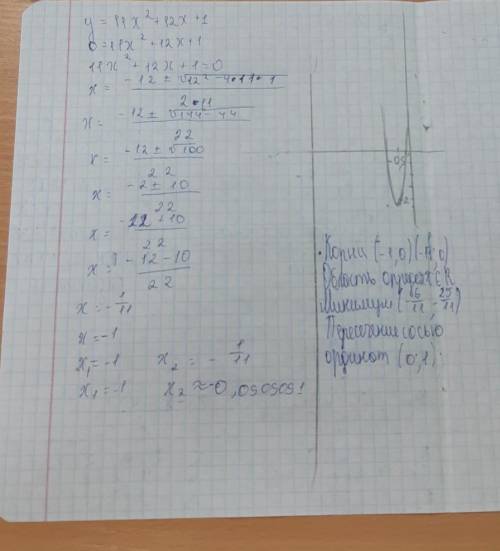 y = 11x² + 12x + 1
0 = 11x² + 12x + 1
11x² + 12x + 1 = 0
x = -12 ± √12² - 4·11·1 / 2·11
x = -12 ± √144 - 44 / 22
x = -12 ± √100 / 22
x = -2 ± 10 / 22
x = -22 + 10 / 22
x = -12 - 10 / 22
x = -1/11
x = -1
x₁ = -1 x₂ = -1/11
x₁ = -1 x₂ ≈ -0,0909091
Корни (-1,0)
Область
Минимум
Пересечение с осью
ординат (0;1)